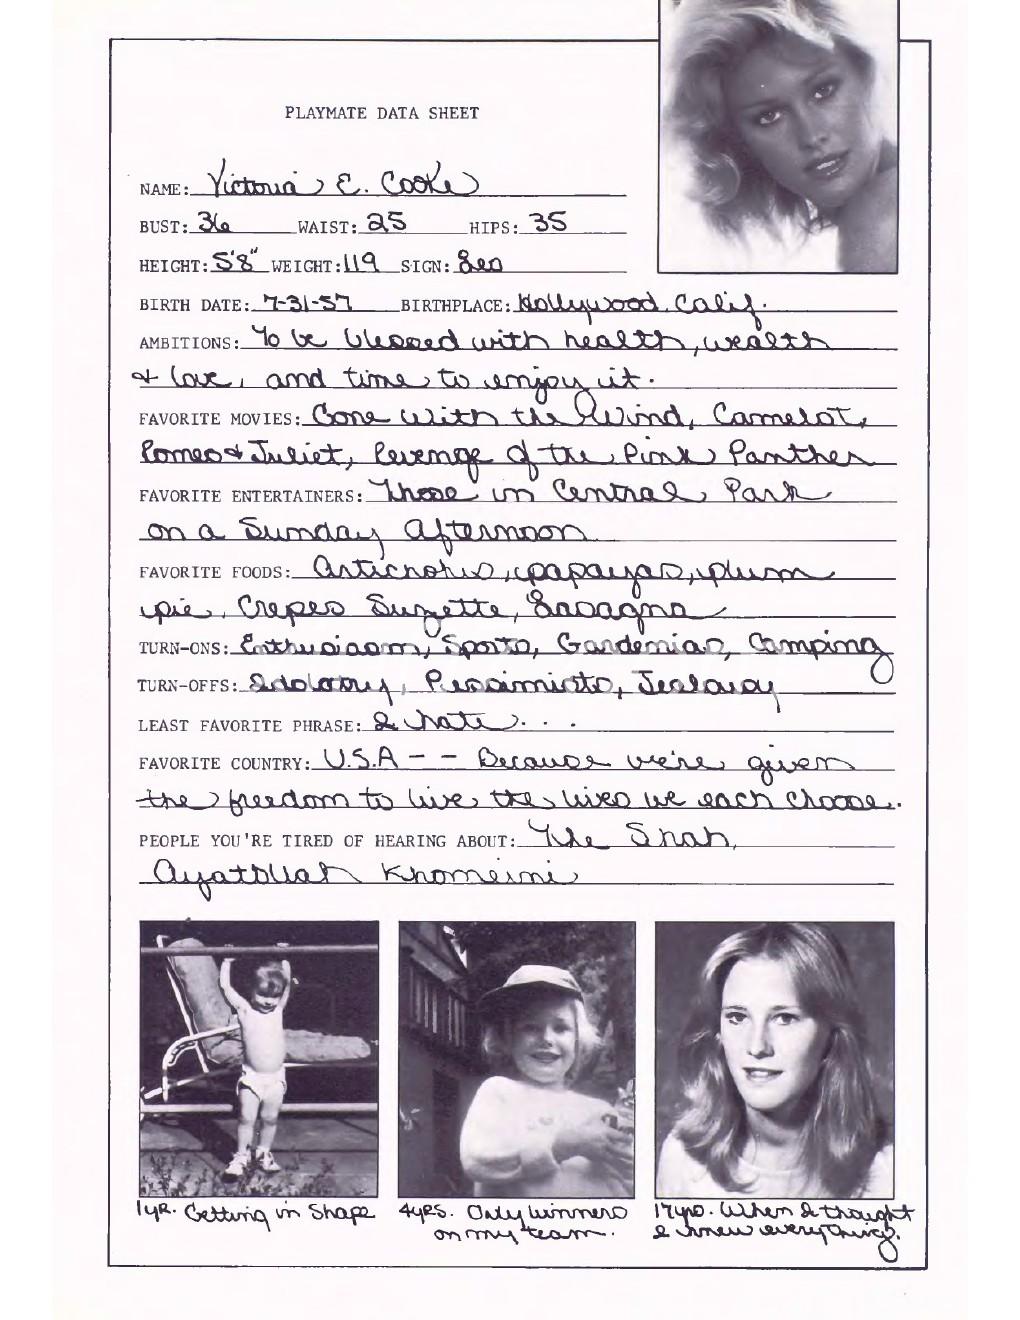 PLAYMATE DATA SHEET
NAME: Victoria E. Cooke
BUST: 36 WAIST: 25 HIPS: 35
HEIGHT: 5'8" WEIGHT: 119 SIGN: Leo
BIRTH DATE: 7-31-57 BIRTHPLACE: Hollywood, Calif.
AMBITIONS: To be blessed with health, wealth
& love, and time to enjoy it.
FAVORITE MOVIES: Gone With the Wind, Camelot,
Romeo & Juliet, Revenge of the Pink Panther
FAVORITE ENTERTAINERS: Those in Central Park
on a Sunday Afternoon
FAVORITE FOODS: Artichokes, papayas, plum
pie, Crepes Suzette, Lasagna
TURN-ONS: Enthusiasm, Sports, Gardenias, Camping
TURN-OFFS: Idolatry, Pessimists, Jealousy
LEAST FAVORITE PHRASE: I hate...
FAVORITE COUNTRY: U.S.A -- Because we're given
the freedom to live the lives we each choose.
PEOPLE YOU'RE TIRED OF HEARING ABOUT: The Shah,
Ayatollah Khomeini
1yr. Getting in Shape
4yrs. Only winners
on my team.
17yrs. When I thought
I knew everything.